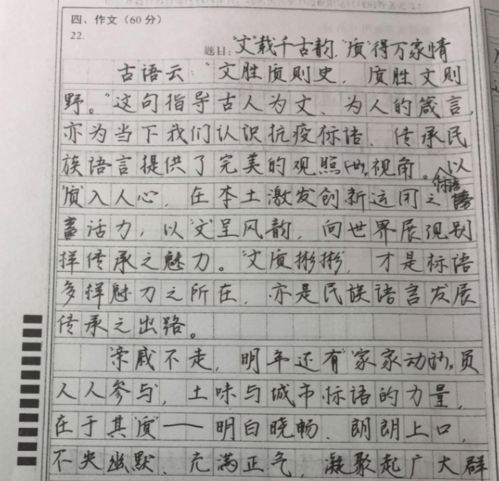 四、作文（60分）
22.
题目："文"载千古韵，"质"得万家情
古语云："文胜质则史，质胜文则
野。"这句指导古人为文、为人的箴言，
亦为当下我们认识抗疫标语、传承民
族语言提供了完美的观照视角。以
"质"入人心，在本土激发创新运用之标语
活力，以"文"呈风韵，向世界展现别
样传承之魅力。"文质彬彬"，才是标语
多样魅力之所在，亦是民族语言发展
传承之出路。
"亲戚不走，明年还有""家家动员，
人人参与"，土味与城市标语的力量，
在于其"质"——明白晓畅、朗朗上口，
不失幽默、充满正气，凝聚起广大群